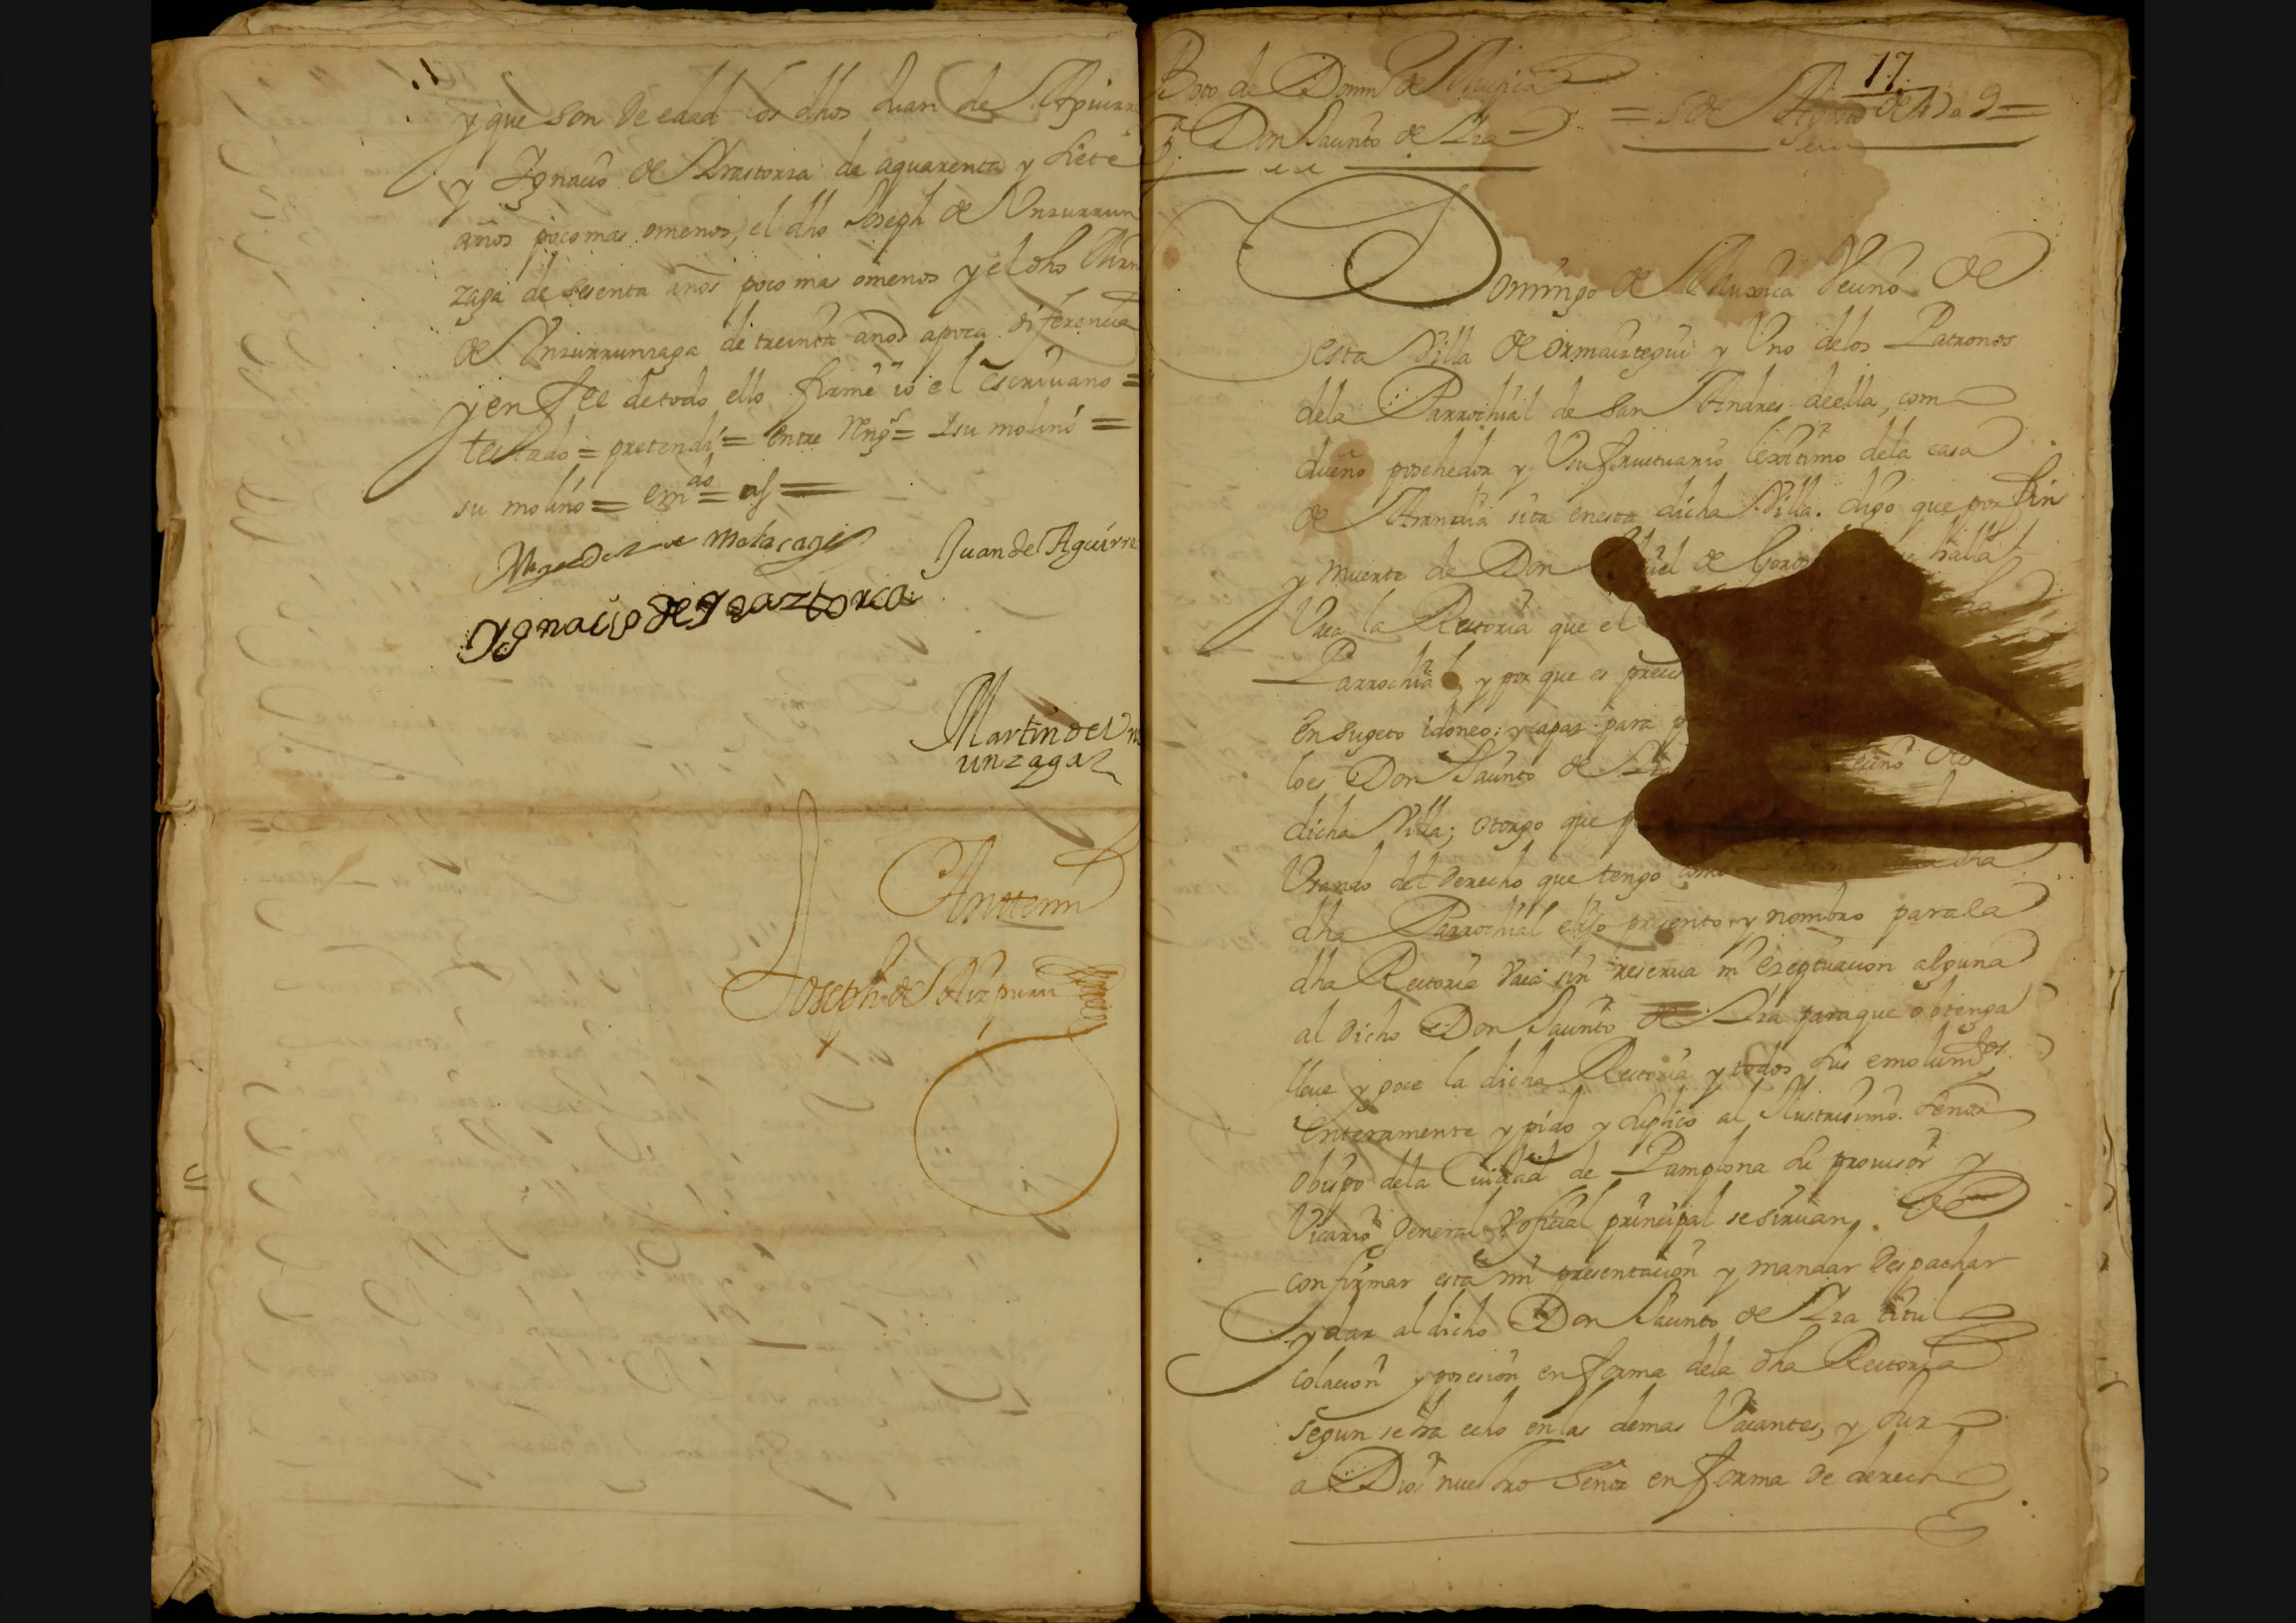 y que son de edad los dhos Juan de
y Ygnacio de Yraztorza de aquarenta y siete
años poco mas omenos, el dho Joseph de Vnzurrun
zaga de sesenta años poco mas omenos y el dho
de Vnzurrunzaga de treinta años apoca diferencia
y en fee de todo ello firme io el escriuano =
testado = pretendi = entre Rengs = Isu molino =
su molino = emdo =
Juan de Aguirre
Ygnacio de Yraaztorca
Martin de Vn
unzaga
Anttemi
Joseph de Aizpuru
17
Boto de Domin de
Don Jacinto de Iza
= 5 de Agosto de 1709 =
Domingo de Muxica Vecino de
esta Villa de ormaiztegui y Vno delos Patronos
dela Parrochial de San Andres deella, com
dueño posehedor y Vsufructuario lexitimo dela casa
de Arandia sita enesta dicha Villa. digo que por fin
y muerte de Don de halla
Vaca la Rectoria que el
Parrochial, y por que es precis
en sugeto idoneo: y capaz para
loes Don Jacinto de Iza
dicha Villa; otorgo que
Vsando del derecho que tengo como dha
dha Parrochial elijo presento y nombro para la
dha Rectoria Vaca sin reserua ni ezeptuacion alguna
al dicho Don Jacinto de Iza paraque obtenga
lleue y goce la dicha Rectoria y todos sus emolumtos
enteramente y pido y suplico al Illustrisimo Señor
Obispo dela Ciudad de Pamplona su prouisor y
Vicario General y oficial principal se siruan de
confirmar esta mi presentacion y mandar despachar
y dar al dicho Don Jacinto de Iza titul
colacion y posesion en forma dela dha Rectoria
segun se ha echo en las demas Vacantes, y Jur
a Dios nuestro Señor en forma de derech